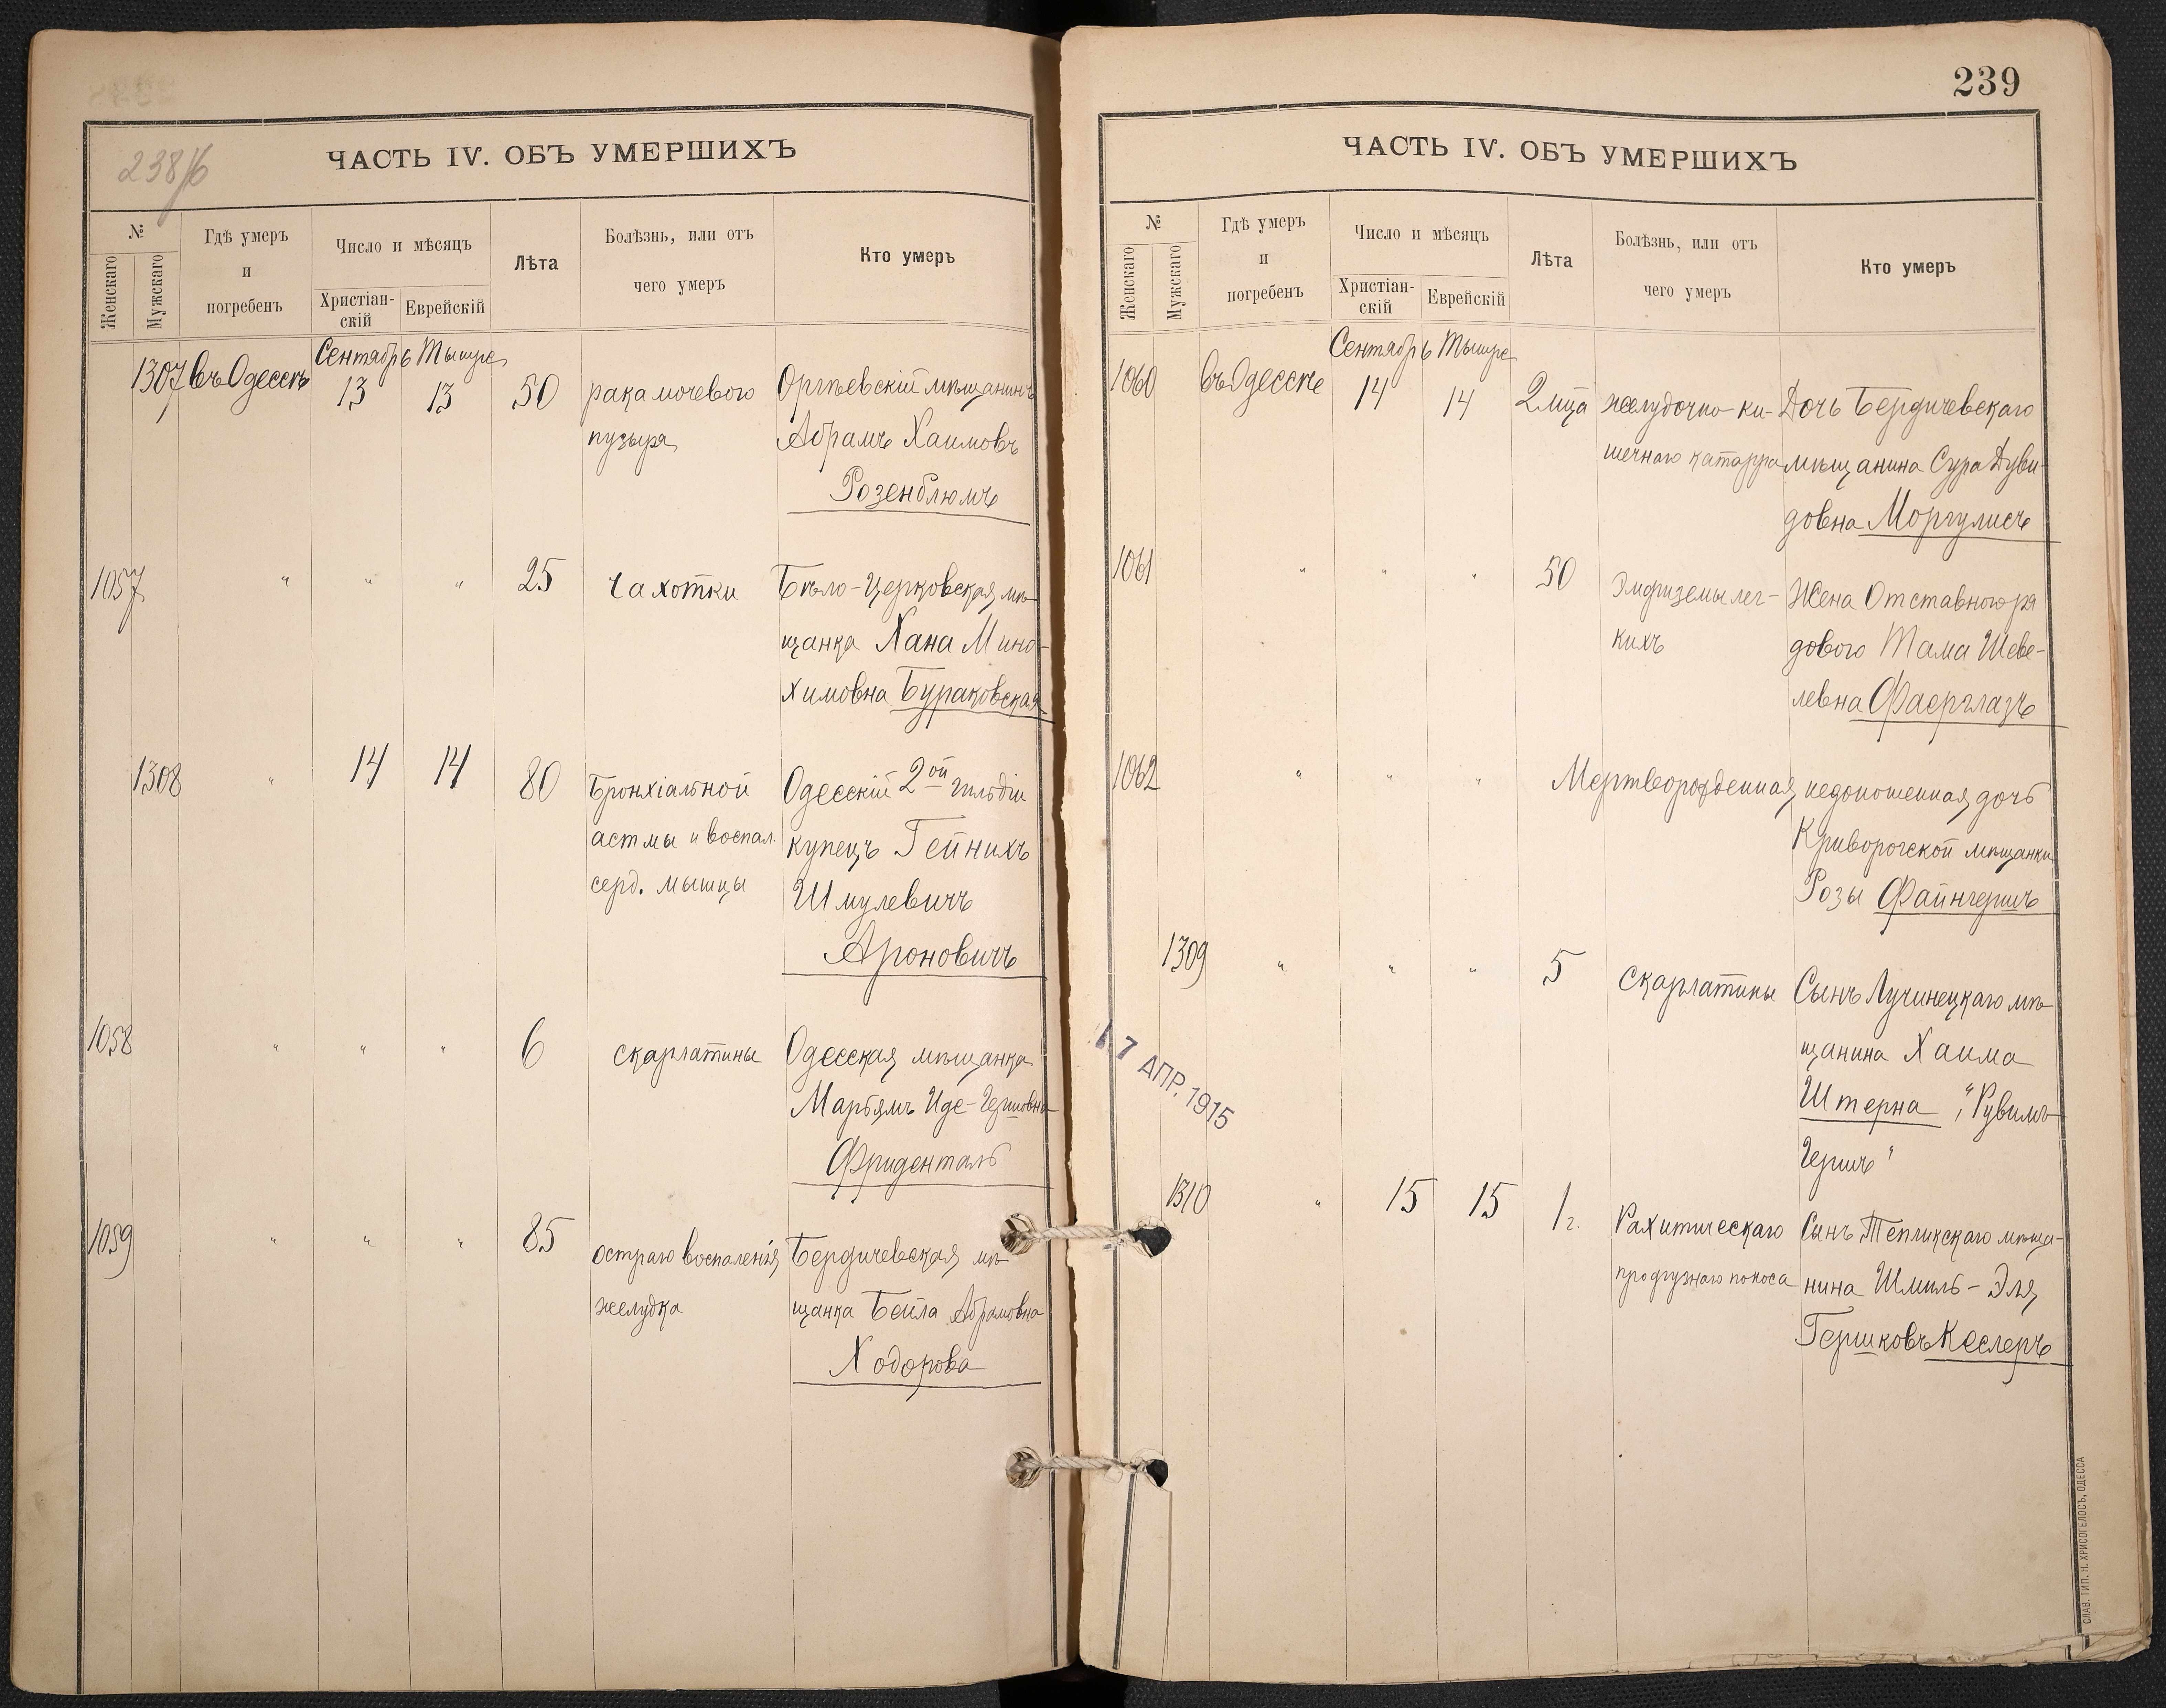 238/б
ЧАСТЬ IV. ОБЪ УМЕРШИХЪ
№
Женскаго
Мужскаго
Гдѣ умеръ
и
погребенъ
Число и мѣсяцъ
Христіан-
скій
Еврейскій
Лѣта
Болѣзнь, или отъ
чего умеръ
Кто умеръ
Сентябрь Тышре
1307 въ Одессѣ 13 13 50 рака мочевого Оргѣевскій мѣщанинъ
пузыря Абрамъ Хаимовъ
Розенблюмъ
1057 " " " 25 чахотки Бѣло-Церковская мѣ-
щанка Хана Мино-
химовна Бураковская
1308 " 14 14 80 Бронхіальной Одесскій 2ой гильдіи
астмы и воспал. купецъ Гейнихъ
серд. мышцы Шмулевичъ
Ароновичъ
1058 " " " 6 скарлатины Одесская мѣщанка
Марьямъ Иде-Гершовна
Фриденталь
1059 " " " 85 остраго воспаленія Бердичевская мѣ-
желудка щанка Бейла Абрамовна
Ходорова
239
ЧАСТЬ IV. ОБЪ УМЕРШИХЪ
№
Женскаго
Мужскаго
Гдѣ умеръ
и
погребенъ
Число и мѣсяцъ
Христіан-
скій
Еврейскій
Лѣта
Болѣзнь, или отъ
чего умеръ
Кто умеръ
Сентябрь Тышре
1060 въ Одессѣ 14 14 2 мца желудочно-ки- Дочь Бердичевскаго
шечнаго катарра мѣщанина Сура Дуви-
довна Моргулисъ
1061 " " " 50 Эмфиземы лег- Жена Отставного ря
кихъ дового Тама Шеве-
левна Фаерглазъ
1062 " " " Мертворожденная недоношенная дочь
Криворогской мѣщанки
Розы Файнгершъ
1309 " " " 5 Скарлатины Сынъ Лучинецкаго мѣ-
щанина Хаима
Штерна „Рувимъ
Гершъ"
17 АПР. 1915
1310 " 15 15 1 г. Рахитическаго Сынъ Теплицкаго мѣща-
поноса нина Шмиль-Эля
Гершковъ Кеслеръ
СЛАВ. ТИП. Н. ХРИСОГЕЛОСЪ, ОДЕССА